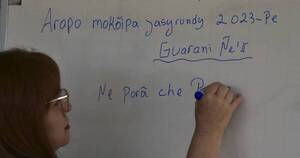 Arapo mokõipa jasyrundy 2023-Pe
Guarani Ñe'ẽ
Ne porã che P